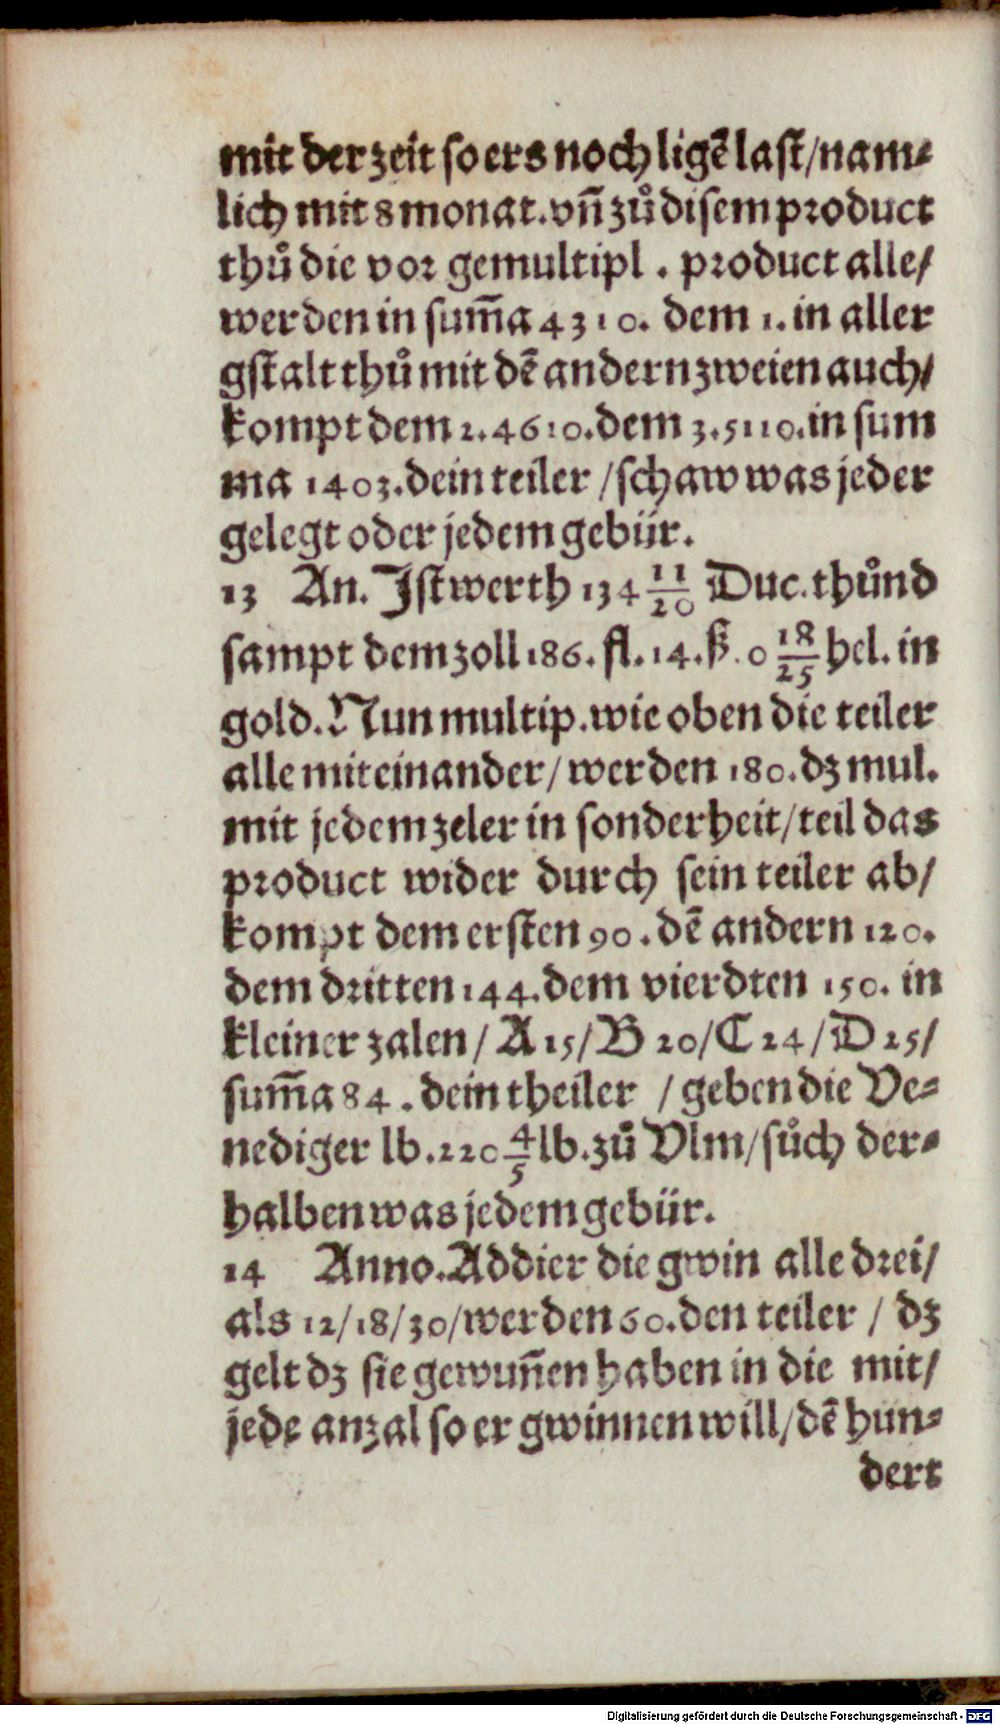 mit der zeit so ers noch ligẽ last/nam⸗
lich mit 8 monat. vñ zů disem product
thů die vor gemultipl . product alle/
werden in sum̃a 4310. dem 1. in aller
gstalt thů mit dẽ andern zweien auch/
kompt dem 2. 4610. dem 3. 5110. in sum
ma 1403. dein teiler /schaw was jeder
gelegt oder jedem gebür.
13 An. Jst werth 134 11/20 Duc. thůnd
sampt dem zoll 186. fl. 14. ß. 0 18/25 hel. in
gold. Nun multip. wie oben die teiler
alle miteinander/ werden 180. dz mul.
mit jedem zeler in sonderheit/teil das
product wider durch sein teiler ab/
kompt dem ersten 90. dẽ andern 120.
dem dritten 144. dem vierdten 150. in
kleiner zalen/ A 15/ B 20/ C 24/ D 25/
sum̃a 84. dein theiler / geben die Ve⸗
nediger lb. 220 4/5 lb. zů Vlm/sůch der⸗
halben was jedem gebür.
14 Anno. Addier die gwin alle drei/
als 12/18/30/werden 60. den teiler / dz
gelt dz sie gewuñen haben in die mit/
jede anzal so er gwinnen will/dẽ hun⸗
dert
Digitalisierung gefördert durch die Deutsche Forschungsgemeinschaft - DFG